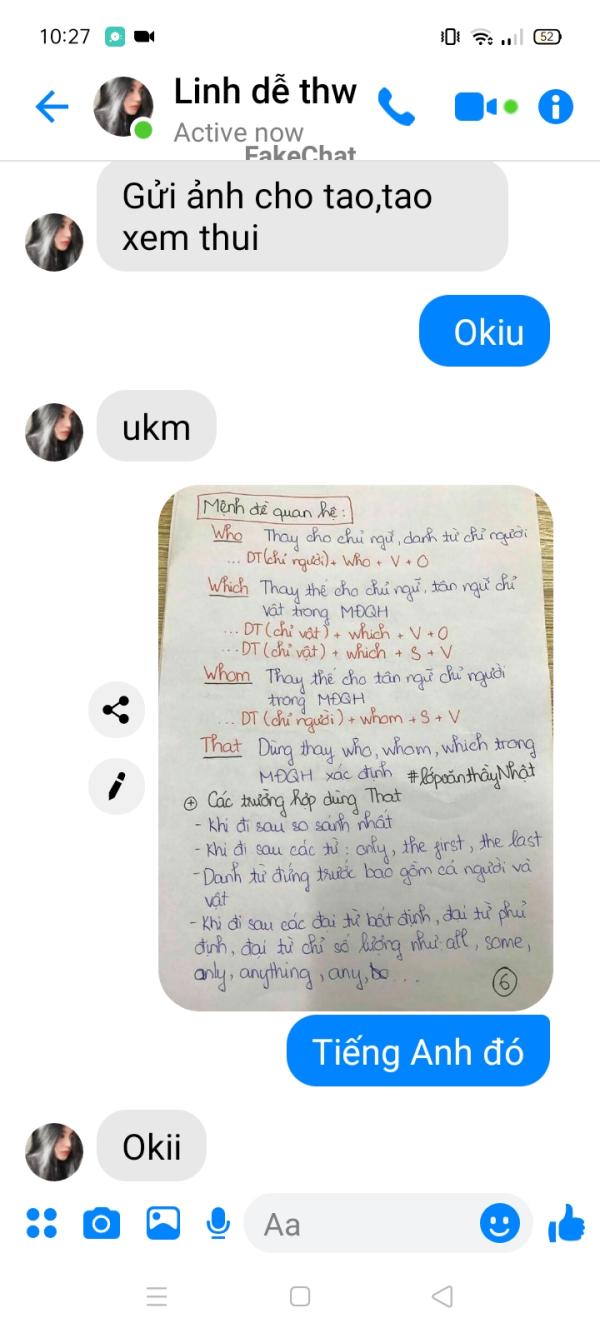 10:27
52
Linh dễ thw
Active now
FakeChat
Gửi ảnh cho tao,tao
xem thui
Okiu
ukm
Mệnh đề quan hệ:
Who Thay cho chủ ngữ, danh từ chỉ người
... DT(chỉ người)+ Who + V + O
Which Thay thế cho chủ ngữ, tân ngữ chỉ
vật trong MĐQH
... DT (chỉ vật) + which + V + O
... DT (chỉ vật) + which + S + V
Whom Thay thế cho tân ngữ chỉ người
trong MĐQH
... DT (chỉ người) + whom + S + V
That Dùng thay who, whom, which trong
MĐQH xác định #lớpvănthầyNhật
+ Các trường hợp dùng That
- Khi đi sau so sánh nhất
- Khi đi sau các từ : only, the first, the last
- Danh từ đứng trước bao gồm cả người và
vật
- Khi đi sau các đại từ bất định, đại từ phủ
định, đại từ chỉ số lượng như all, some,
any, anything, any, ...
6
Tiếng Anh đó
Okii
Aa